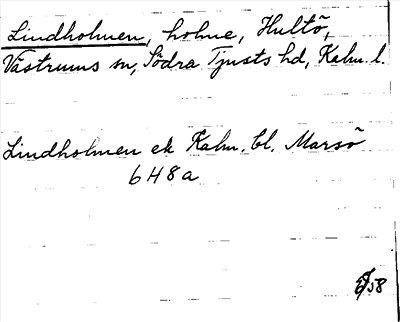 Lindholmen, holme, Hultö,
Västrums sn, Södra Tjusts hd, Kalm. l.
Lindholmen ek Kalm. bl. Marsö
648a
58